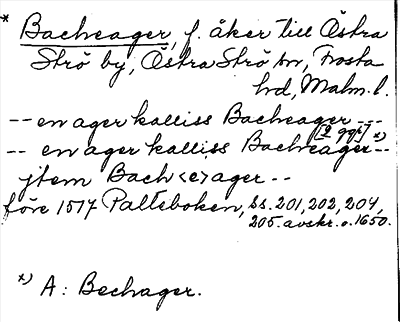 * Bacheager, f. åker till Östra
Strö by, Östra Strö sn, Frosta
hd, Malm. l.
-- en ager kalliss Bacheager --
[2 ggr] *)
-- en ager kalliss Bacheager --
jtem Bach<e>ager --
före 1517 Palteboken, ss. 201, 202, 204,
205. avskr. o. 1650.
*) A: Bechager.